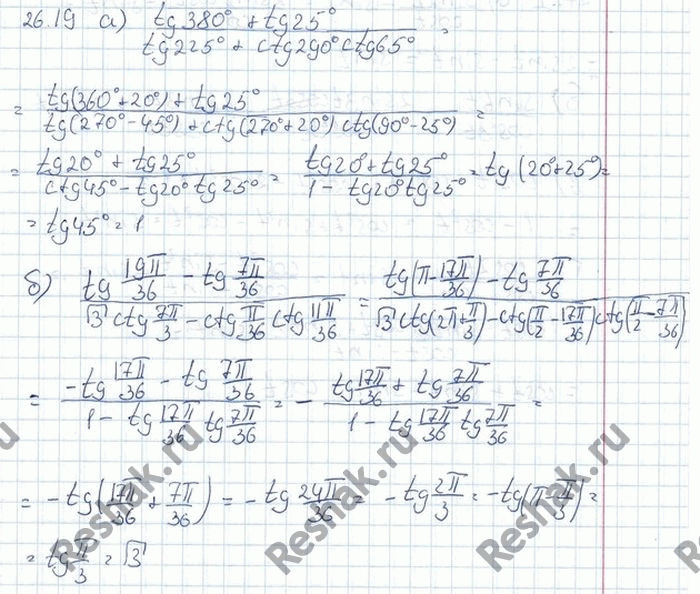 26.19 а) (tg380° + tg25°)/(tg225° + ctg290° ctg65°) =
= (tg(360°+20°) + tg25°)/(tg(270°-45°) + ctg(270°+20°) ctg(90°-25°)) =
= (tg20° + tg25°)/(ctg45° - tg20° tg25°) = (tg20° + tg25°)/(1 - tg20° tg25°) = tg(20°+25°) =
= tg45° = 1
б) (tg 19π/36 - tg 7π/36)/(√3 ctg 7π/3 - ctg π/36 ctg 11π/36) = (tg(π - 17π/36) - tg 7π/36)/(√3 ctg(2π + π/3) - ctg(π/2 - 17π/36) ctg(π/2 - 7π/36))
= (-tg 17π/36 - tg 7π/36)/(1 - tg 17π/36 tg 7π/36) = - (tg 17π/36 + tg 7π/36)/(1 - tg 17π/36 tg 7π/36) =
= -tg(17π/36 + 7π/36) = -tg 24π/36 = -tg 2π/3 = -tg(π - π/3) =
= tg π/3 = √3
Reshak.ru
Reshak.ru